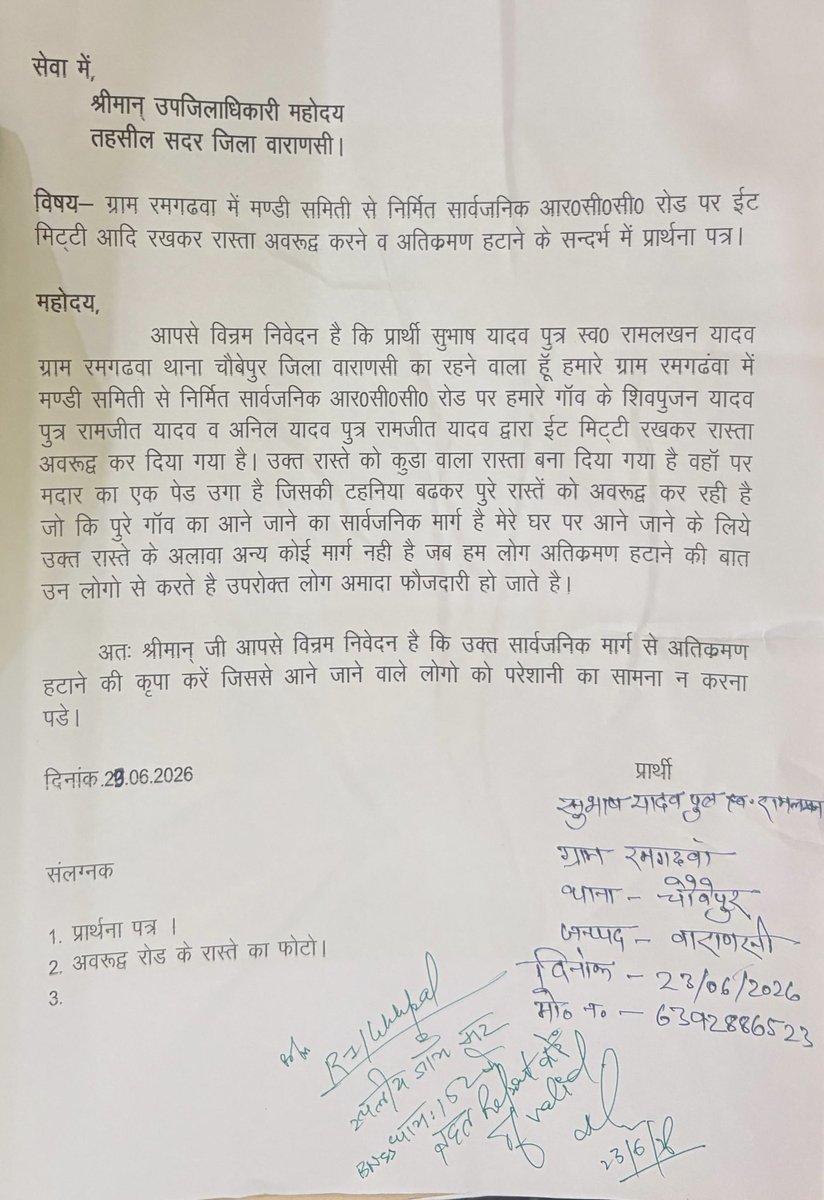 सेवा में,
श्रीमान् उपजिलाधिकारी महोदय
तहसील सदर जिला वाराणसी।
विषय– ग्राम रमगढवा में मण्डी समिति से निर्मित सार्वजनिक आर0सी0सी0 रोड पर ईट
मिट्टी आदि रखकर रास्ता अवरूद्व करने व अतिकमण हटाने के सन्दर्भ में प्रार्थना पत्र।
महोदय,
आपसे विन्रम निवेदन है कि प्रार्थी सुभाष यादव पुत्र स्व0 रामलखन यादव
ग्राम रमगढवा थाना चौबेपुर जिला वाराणसी का रहने वाला हूॅ हमारे ग्राम रमगढंवा में
मण्डी समिति से निर्मित सार्वजनिक आर0सी0सी0 रोड पर हमारे गॉव के शिवपुजन यादव
पुत्र रामजीत यादव व अनिल यादव पुत्र रामजीत यादव द्वारा ईट मिट्टी रखकर रास्ता
अवरूद्व कर दिया गया है। उक्त रास्ते को कुडा वाला रास्ता बना दिया गया है वहॉ पर
मदार का एक पेड उगा है जिसकी टहनिया बढकर पुरे रास्तें को अवरूद्व कर रही है
जो कि पुरे गॉव का आने जाने का सार्वजनिक मार्ग है मेरे घर पर आने जाने के लिये
उक्त रास्ते के अलावा अन्य कोई मार्ग नही है जब हम लोग अतिकमण हटाने की बात
उन लोगो से करते है उपरोक्त लोग अमादा फौजदारी हो जाते है।
अतः श्रीमान् जी आपसे विन्रम निवेदन है कि उक्त सार्वजनिक मार्ग से अतिकमण
हटाने की कृपा करें जिससे आने जाने वाले लोगो को परेशानी का सामना न करना
पडे।
दिनांक.23.06.2026
प्रार्थी
सुभाष यादव पुत्र स्व. रामलखन
ग्राम रमगढवाँ
थाना – चौबेपुर
जनपद – वाराणसी
दिनांक – 23/06/2026
मो० न० – 6392886523
संलग्नक
1. प्रार्थना पत्र ।
2. अवरूद्व रोड के रास्ते का फोटो।
3.
RI/Lekhpal
स्थलीय जाँच कर
BNSS धारा: 152 के
तहत Report
23/6/26